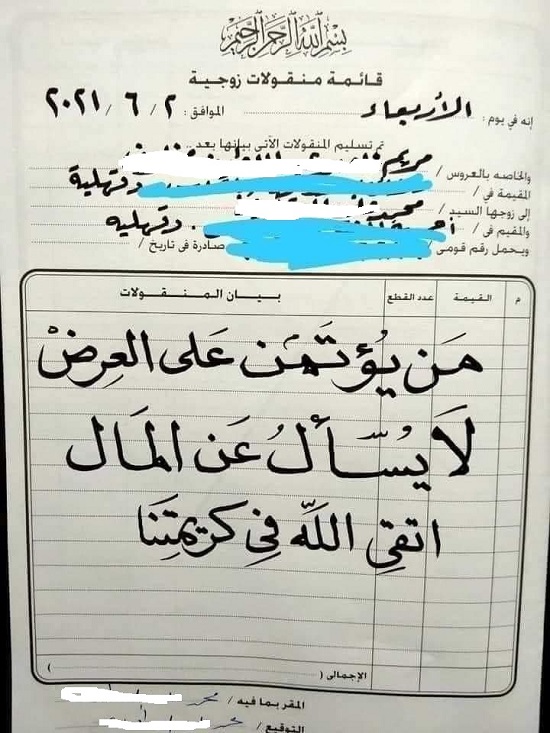 بسم الله الرحمن الرحيم
قائمة منقولات زوجية
إنه في يوم : الأربعاء الموافق : ٢ / ٦ / ٢٠٢١
تم تسليم المنقولات الآتى بيانها بعد ..
والخاصه بالعروس / مريم
المقيمة في / دقهلية
إلى زوجها السيد / محمد
والمقيم فى / دقهليه
ويحمل رقم قومى / صادرة فى تاريخ /
م القيمة عدد القطع بيان المنقولات
مَن يُؤتَمَن عَلى العِرضْ
لَا يُسَأَلُ عَن المَال
اتقِ اللَّه فِى كريمتِنَا
الإجمالى ( )
المقر بما فيه / محمد
التوقيع /